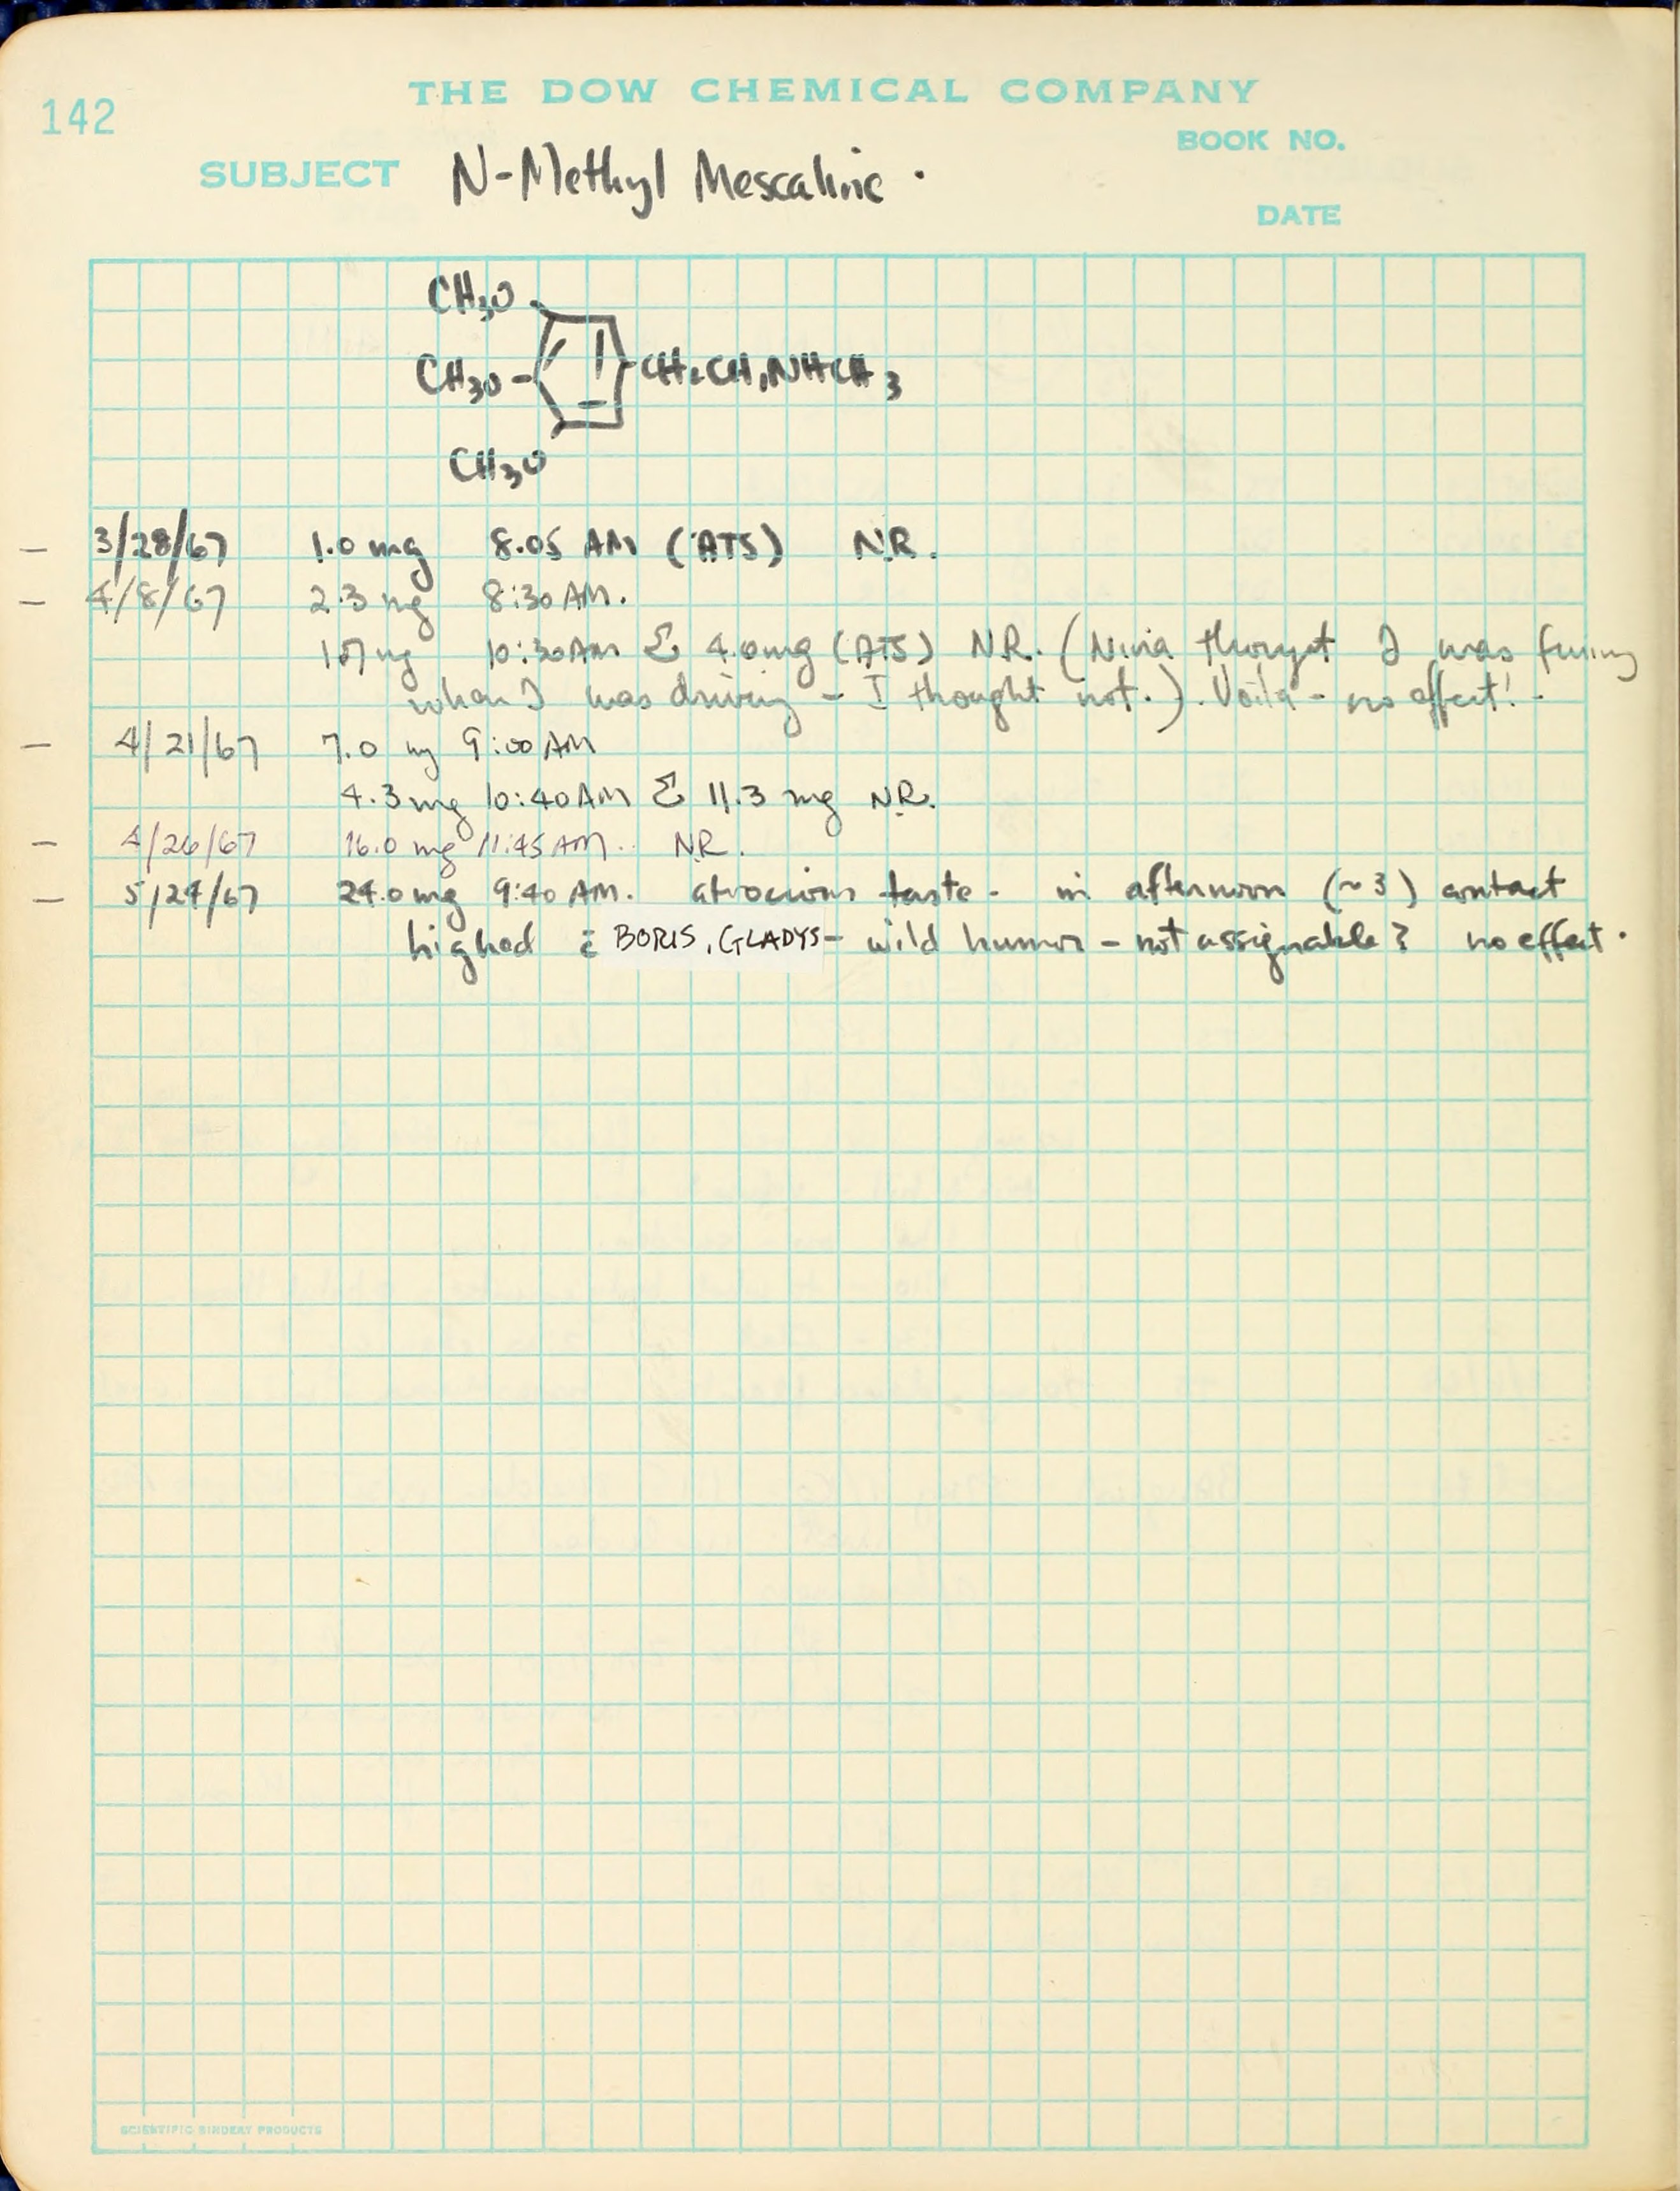 THE DOW CHEMICAL COMPANY
142
BOOK NO.
SUBJECT N-Methyl Mescaline.
DATE
CH3O
CH3O CH2CH2NHCH3
CH3O
— 3/28/67 1.0 mg 8:05 AM (ATS) N.R.
— 4/8/67 2.3 mg 8:30 AM.
1.7 mg 10:30 AM Σ 4.0 mg (ATS) N.R. (Nina thought I was funny
when I was driving – I thought not.). Voila – no effect! -
— 4/21/67 7.0 mg 9:00 AM
4.3 mg 10:40 AM Σ 11.3 mg N.R.
— 4/26/67 16.0 mg 11:45 AM. N.R.
— 5/24/67 24.0 mg 9:40 AM. atrocious taste - in afternoon (~3) contact
highed c̄ BORIS, GLADYS – wild humor – not assignable? no effect.
SCIENTIFIC BINDERY PRODUCTS